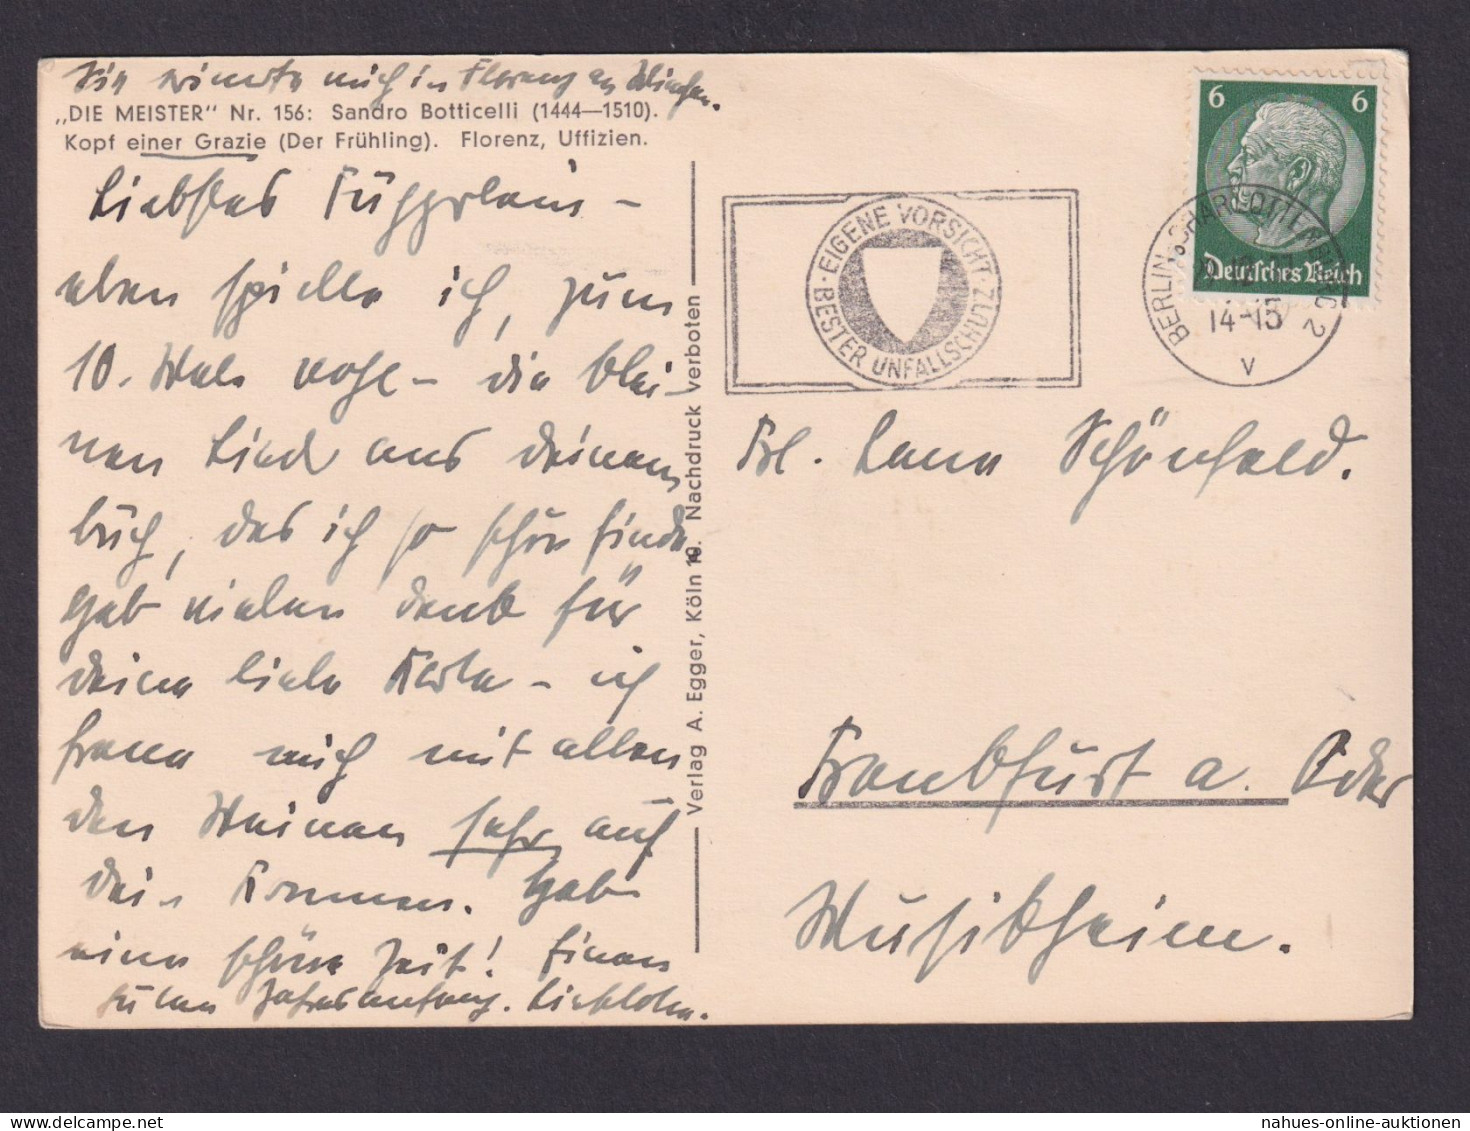 Sie erinnerte mich in Florenz an
„DIE MEISTER" Nr. 156: Sandro Botticelli (1444—1510).
Kopf einer Grazie (Der Frühling). Florenz, Uffizien.
Liebstes
eben spielte ich, zum
10. Male wohl – die klei-
nen Lieder aus deinem
buch, das ich so schön finde
hab vielen dank für
deine liebe Karte – ich
freue mich mit allen
den Meinen sehr auf
dein Kommen. Habe
eine schöne Zeit! Einen
guten Jahresanfang.
Verlag A. Egger, Köln 19. Nachdruck verboten
EIGENE VORSICHT · BESTER UNFALLSCHUTZ ·
6 6
Deutsches Reich
BERLIN-CHARLOTTENBURG 2
14-15
v
Frl. Lena Schönfeld.
Frankfurt a. Oder
Musikheim.
nahues-online-auktionen